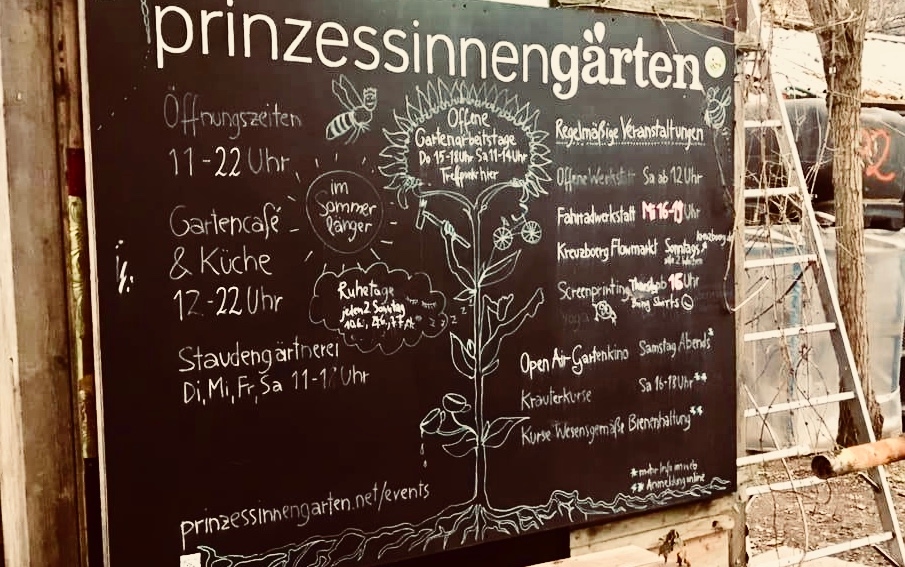 prinzessinnengärten
Öffnungszeiten
11-22 Uhr
Gartencafé
& Küche
12-22 Uhr
Staudengärtnerei
Di, Mi, Fr, Sa 11-1 Uhr
prinzessinnengarten.net/events
im
Sommer
länger
Ruhetage
jeden 2 Sonntag
Offene
Gartenarbeitstage
Do 15-18 Uhr Sa 11-14 Uhr
Treffpunkt hier
Regelmäßige Veranstaltungen
Offene Werkstatt Sa ab 12 Uhr
Fahrradwerkstatt Mi 16-19 Uhr
Kreuzboerg Flowmarkt Sonntags
Screenprinting ab 16 Uhr
Bring Shirts
yoga
Open Air Gartenkino Samstag Abends*
Kräuterkurse Sa 16-18 Uhr**
Kurse Wesensgemäße Bienenhaltung**
* mehr Info im web
** Anmeldung online